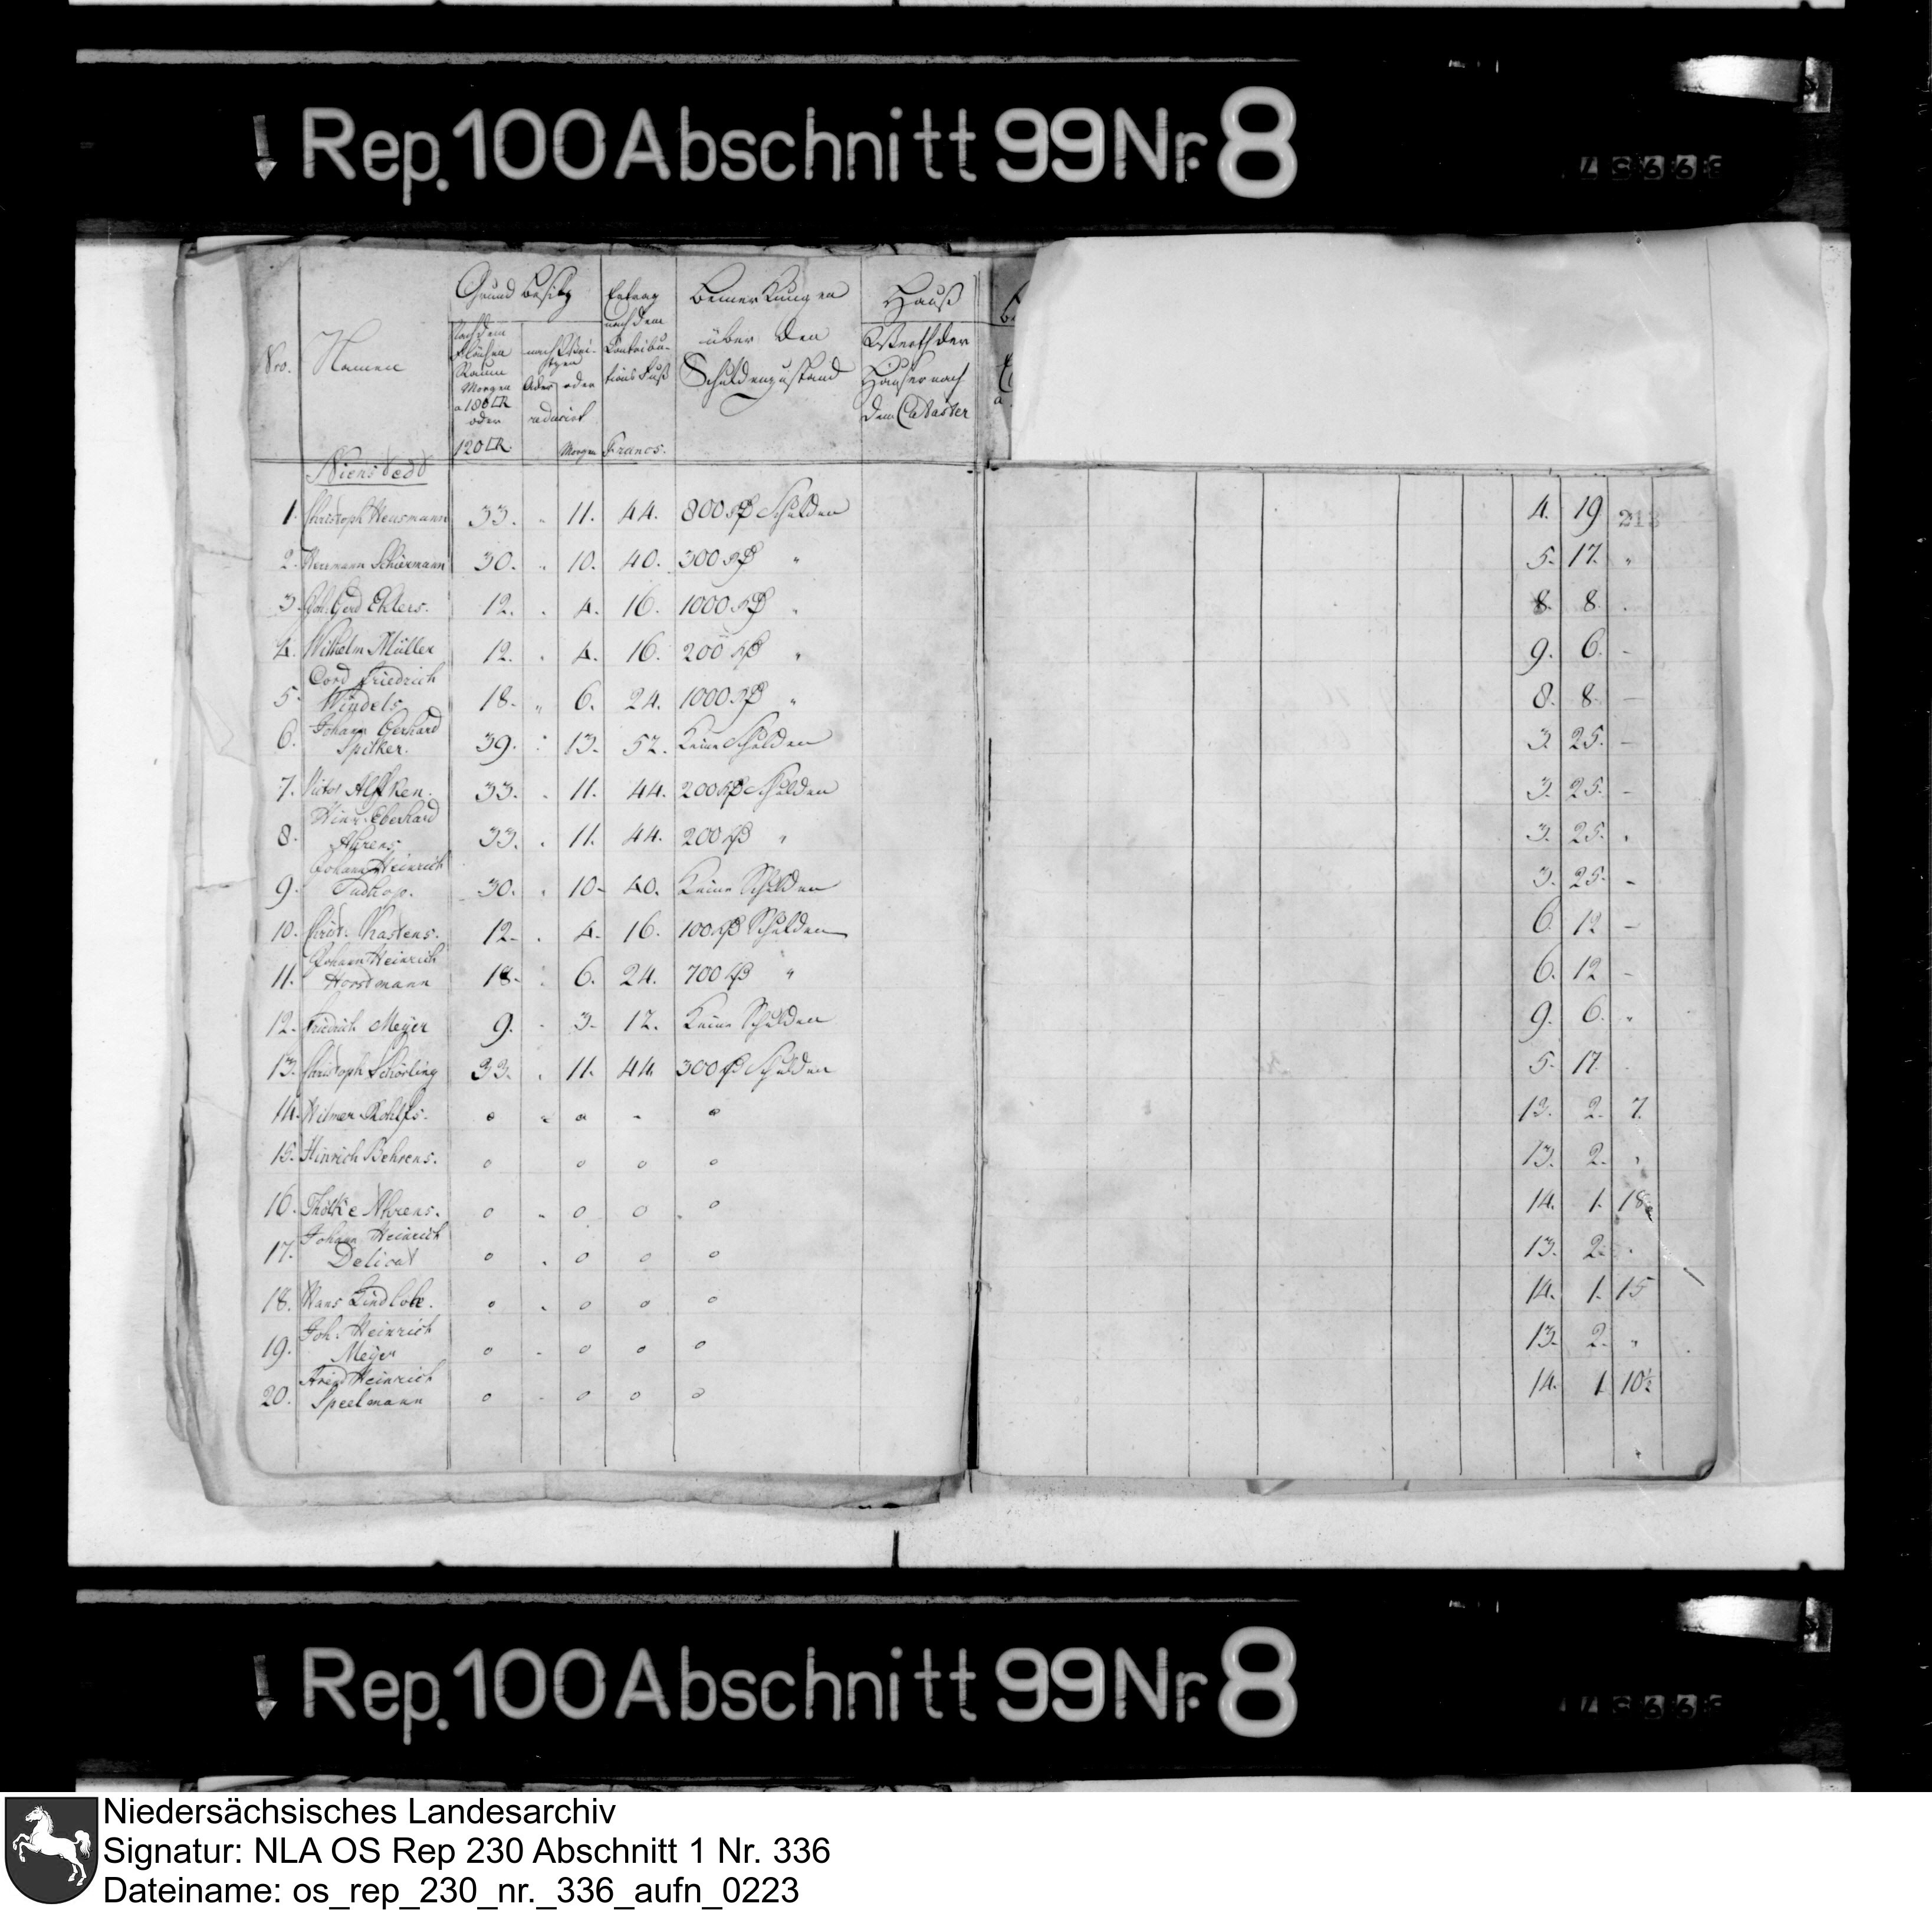 Rep. 100 Abschnitt 99 Nr. 8
Nro. Namen Grund besitz Ertrag nach dem Contribu- tions Fuß Bemerkungen über den Schuldenzustand Hauß
Nach dem Flächen Raum Morgen a 180 □R oder 120 □R. nach oder reducirt Morgen Francs. Werth der Häuser nach dem Cataster
Nienstedt
1. Christoph Heusmann 33. " 11. 44. 800 rß Schulden 4. 19 213
2. Hermann Schiermann 30. " 10. 40. 300 rß " 5. 17. "
3. Joh. Gerd Ehlers. 12. . 4. 16. 1000 rß " 8. 8. .
4. Wilhelm Müller 12. . 4. 16. 200 rß " 9. 6. -
5. Cord Friedrich Windels 18. " 6. 24. 1000 rß " 8. 8. -
6. Johann Gerhard Spilker. 39. : 13. 52. Keine Schulden 3. 25. -
7. Victor Alfken. 33. . 11. 44. 200 rß Schulden 3. 25. -
8. Hinr. Eberhard Ahrens 33. . 11. 44. 200 rß " 3. 25. "
9. Johann Heinrich 30. . 10- 40. Keine Schulden 3. 25. -
10. Christ. Kastens. 12- . 4- 16. 100 rß Schulden 6. 12 -
11. Johann Heinrich Horstmann 18- : 6. 24. 700 rß " 6. 12 -
12. Friedrich Meyer 9. - 3- 12. Keine Schulden 9. 6. "
13. Christoph Schörling 33. . 11. 44. 300 rß Schulden 5. 17. .
14. Wilmer Rohlfs. o - o - o 13. 2. 7.
15. Hinrich Behrens. o o o o 13. 2. "
16. Thölke Ahrens. o - o o o 14. 1. 18
17. Johann Heinrich Delicat o . o o o 13. 2. .
18. Hans Lindloh. o - o o o 14. 1. 15
19. Joh. Heinrich Meyer o - o o o 13. 2. "
20. Fried Heinrich Speelmann o - o o o 14. 1 10½
Rep. 100 Abschnitt 99 Nr. 8
Niedersächsisches Landesarchiv
Signatur: NLA OS Rep 230 Abschnitt 1 Nr. 336
Dateiname: os_rep_230_nr._336_aufn_0223